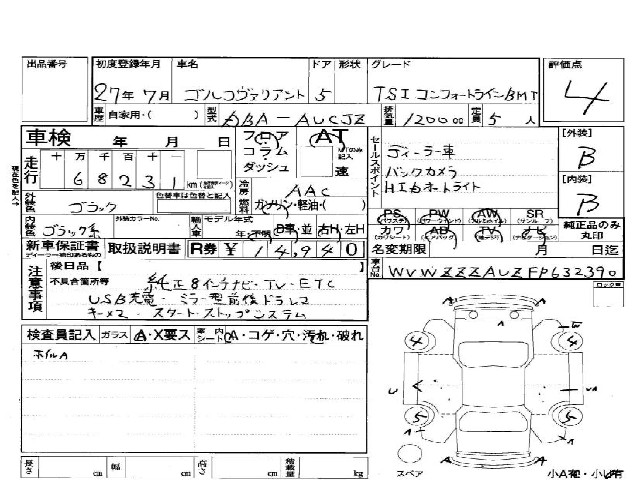 出品番号 初度登録年月 車名 ドア 形状 グレード 評価点
27年 7月 ゴルフヴァリアント 5 TSI コンフォートラインBMT 4
車歴 自家用・( ) 型式 ABA-AUCJZ 排気量 1200 cc 定員 5 人
車検 年 月 日 フロア コラム ダッシュ AT 速 セールスポイント
走行 十 万 千 百 十 一
6 8 2 3 1 km
ディーラー車
バックカメラ
HIDヘッドライト
冷房 AAC
燃料 ガソリン・軽油・( )
外装色 ブラック 色替車は色替と記入
内装色 ブラック系 外装カラーNo. 輸入車 モデル年式 年・不明 D車・並 右H・左H
[外装] B
[内装] B
PS PW AW SR
カワ AB TV ナビ 純正品のみ丸印
新車保証書 取扱説明書 R券 ¥ 14,940 名変期限 月 日迄
車台No. WVWZZZAUZFP632390
注意事項 後日品【
不具合箇所等 純正8インチナビ・TV・ETC
USB充電・ミラー型前後ドラレコ
キー×2・スタート・ストップシステム
検査員記入 ガラス A・X要ス 車内シート A・コゲ・穴・汚れ・破れ
ホイルA
長さ cm 幅 cm 高さ cm 積載量 kg
スペア 小A有・小U有